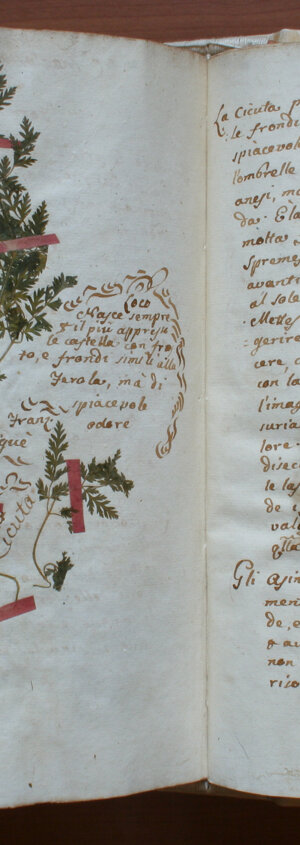 Loco
Nasce sempre
& il più appresso
le castella con fro
to, e frondi simili alla
ferola, mà di
spiacevole
odore
Franz:
Ciguë
Cicuta
La Cicuta f
le frondi
spiacevol
l'ombrelle
anesi, ma
da: Ela
motta e
spremes
avanti
al sole
Mettes
gerire
cere, 
con la
l'imag
suria
lore
disec
le las
de i
val
Gli asin
men
de, e
& au
non
rico